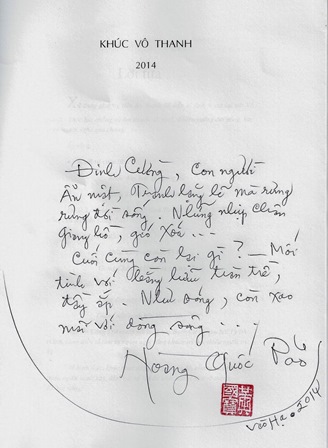 KHÚC VÔ THANH
2014
Đinh Cường, con người
Ẩn mật, Thanh lặng lẽ mà rưng
rưng đời sống. Những nhịp chân
giang hồ, gió xoá ...
Cuối cùng còn lại gì? — Mối
tình với
đầy ắp. Như sóng, còn xao
mãi với dòng sông ...
Hoàng Quốc Bảo
Vào Hạ. 2014